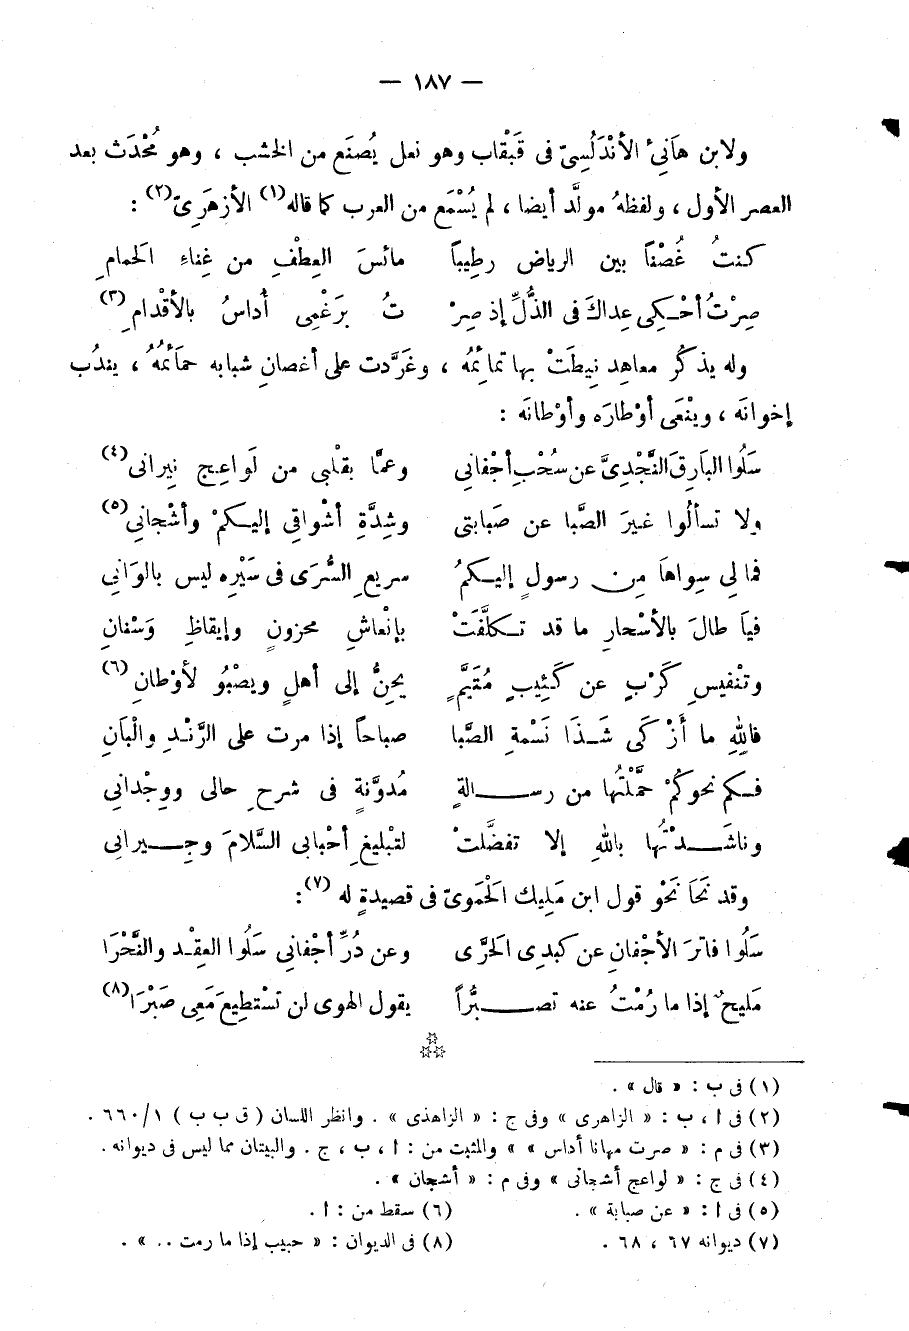 — ١٨٧ —
ولابن هَانِئ الأنْدَلُسِيّ فى قَبْقاب وهو نعل يُصْنَع من الخشب ، وهو مُحْدَث بعد
العصر الأول ، ولفظهُ مولَّد أيضا ، لم يُسْمَع من العرب كما قاله(١) الأزهَرِىّ(٢) :
كنتُ غُصْناً بين الرياض رطِيباً مائسَ العِطْفِ من غِناءِ الحمامِ
صِرْتُ أحْكِى عِداكَ فى الذُّلِّ إذ صِرْ تُ بَرَغْمِى أُداسُ بالأقْدامِ(٣)
وله يذكُر معاهِد نِيطَتْ بها تمائمُه ، وغَرَّدت على أغصانِ شبابه حمَائمُهُ ، يندُب
إخوانَه ، وينْعَى أوْطارَه وأوْطانَه :
سَلُوا البَارِقَ النَّجْدِىَّ عن سُحْبِ أجْفانِي وعمَّا بقَلْبى من لَواعِج نِيرانى(٤)
ولا تسألُوا غيرَ الصَّبا عن صَبابتى وشِدَّةِ أشْواقِي إليكمْ وأشْجانِي(٥)
فما لِي سِواهَا مِن رسولٍ إليكمُ سريعِ السُّرَى فى سَيْرِه ليس بالوَانِي
فيَا طالَ بالأسْحارِ ما قد تكلَّفَتْ بإنْعاشِ محزونٍ وإيقاظِ وَسْنانِ
وتنْفيسِ كَرْبٍ عن كَئِيبٍ مُقَيَّمٍ يحِنُّ إلى أهلٍ ويصْبُو لأوْطانِ(٦)
فاللهِ ما أَزْكَى شَذَا نَسْمةِ الصَّبا صباحاً إذا مرت على الرَّنْدِ والْبَانِ
فكم نحوكُمْ حَمَّلْتُها من رسالةٍ مُدوَّنةٍ فى شرحِ حالى ووِجْدانِي
وناشَدْتُها باللهِ إلا تفضَّلتْ لتبْليغِ أحْبابى السَّلامَ وجِيرانِي
وقد نَحَا نَحْوَ قول ابن مَلِيك الحْمَوىّ فى قصيدةٍ له (٧):
سَلُوا فاترَ الأجْفانِ عن كبدِى الحَرَّى وعن دُرِّ أجْفانِي سَلُوا العِقْد والنَّحْرَا
مَليحٌ إذا ما رُمْتُ عنه تصبُّراً يقول الهوى لن تسْتطِيعَ مَعِى صَبْرَا(٨)
(١) فى ب : « قال » .
(٢) فى ا ، ب : « الزاهرى » وفى ج : « الزاهذى » . وانظر اللسان ( ق ب ب ) ٦٦٠/١ .
(٣) فى م : « صرت مهانا أداس » » والمثبت من : ا ، ب ، ج . والبيتان مما ليس فى ديوانه .
(٤) فى ج : « لواعج أشجانى » وفى م : « أشجان » .
(٥) فى ا : « عن صبابة » . (٦) سقط من : ا .
(٧) ديوانه ٦٧ ، ٦٨ . (٨) فى الديوان : « حبيب إذا ما رمت .. » .